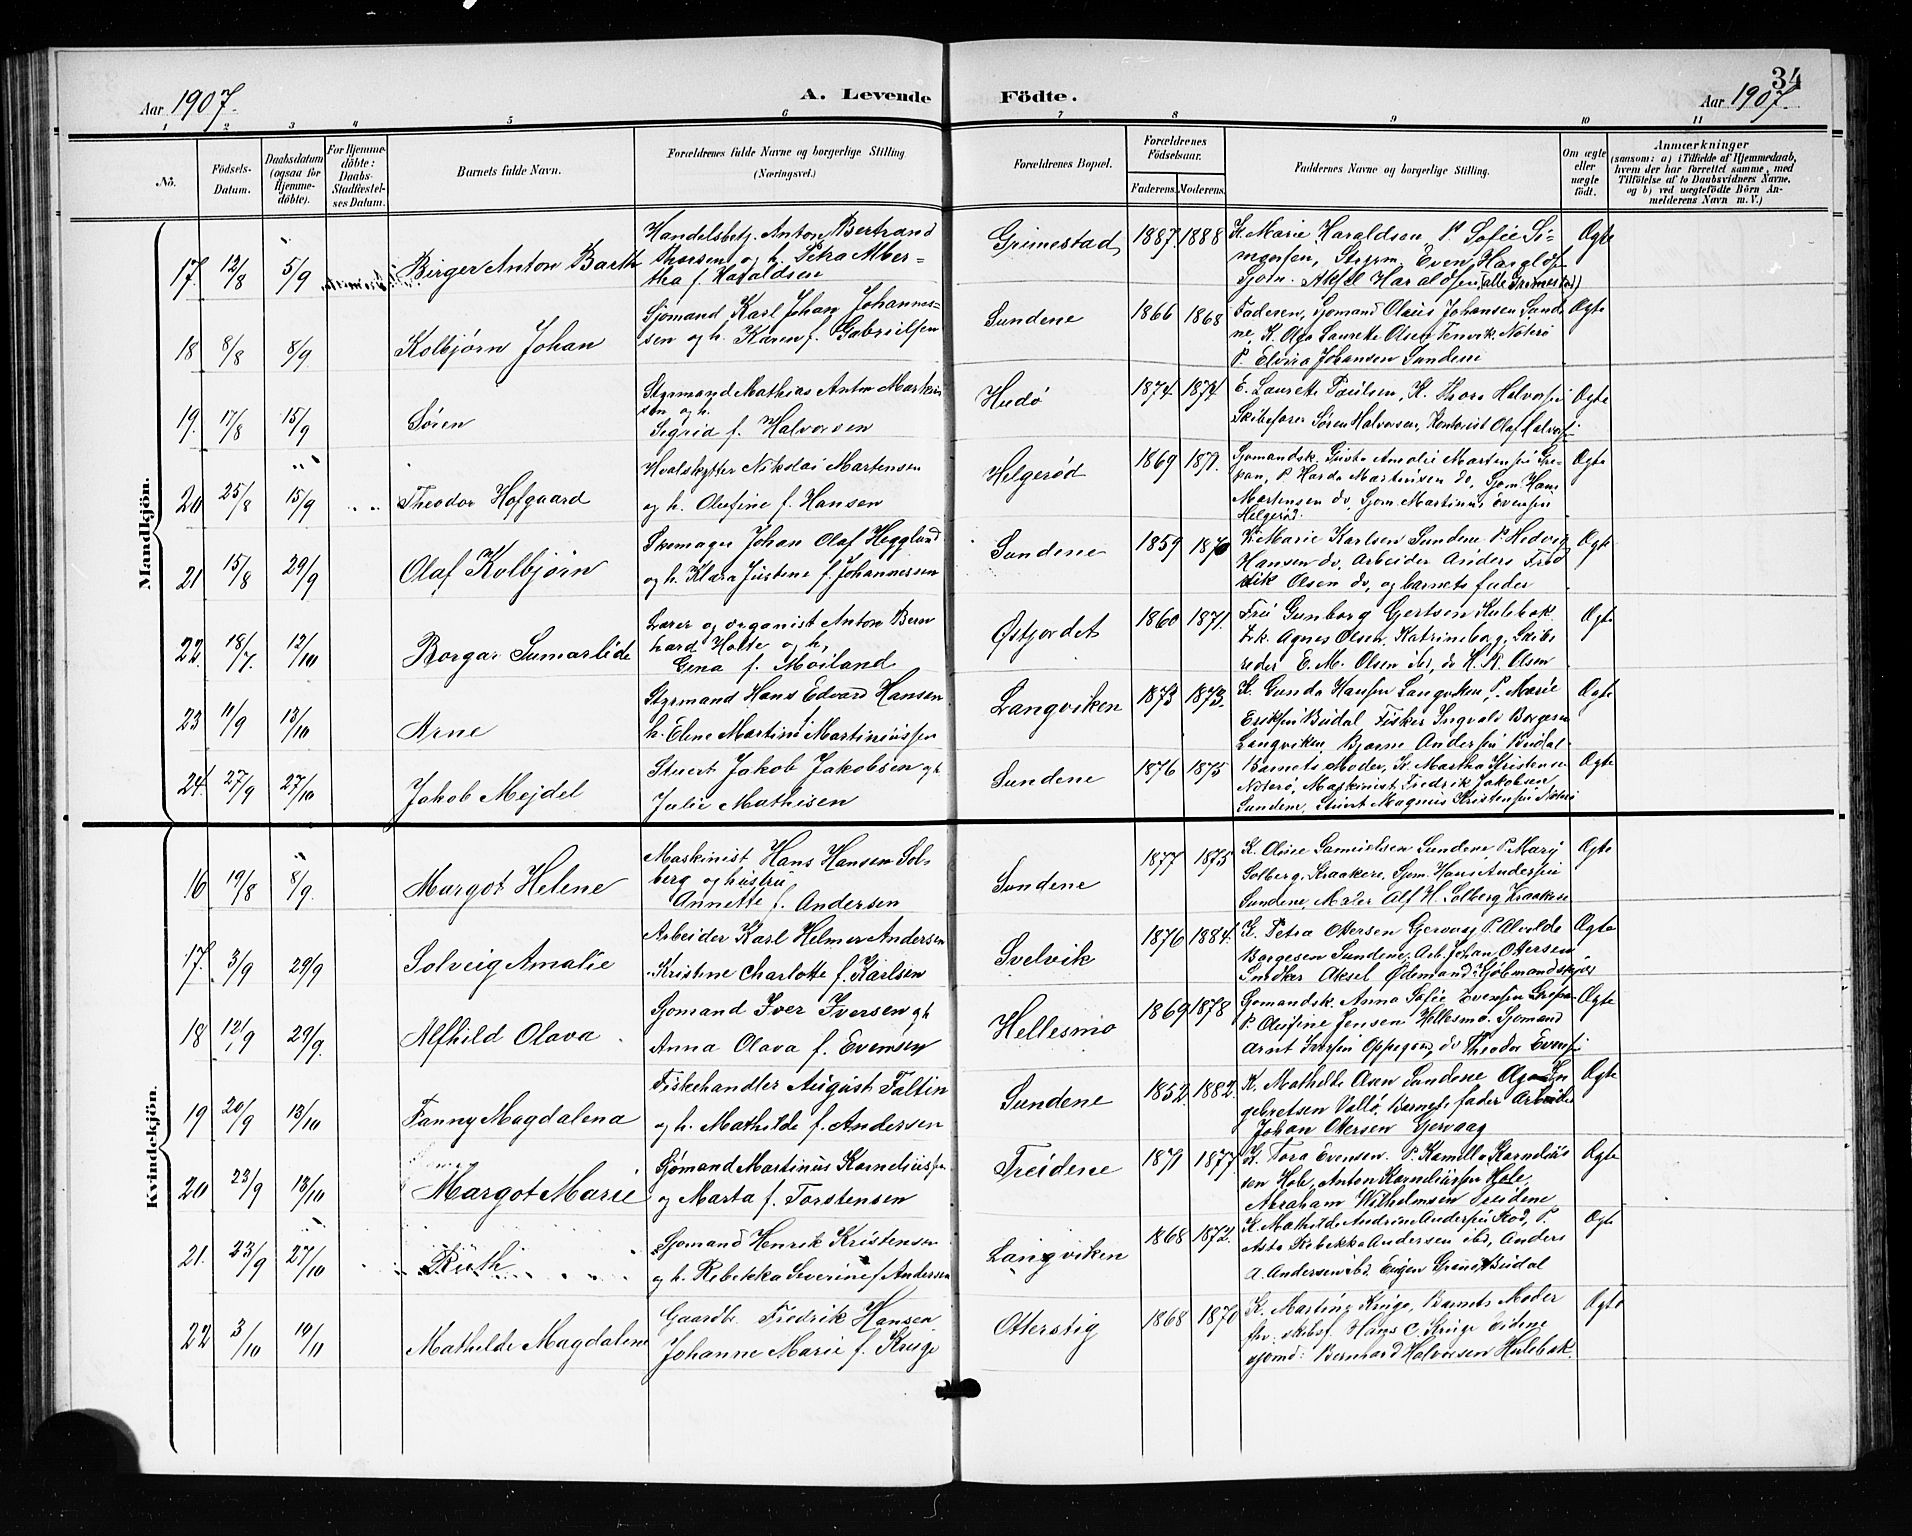 34
Aar 1907.
A. Levende Födte.
Aar 1907.
1 2 3 4 5 6 7 8 9 10 11
No.
Födsels-Datum.
Daabsdatum (ogsaa for Hjemmedöbte).
For Hjemmedöbte: Daabs-Stadfestelses Datum.
Barnets fulde Navn.
Forældrenes fulde Navne og borgerlige Stilling
(Næringsvei.)
Forældrenes Bopæl.
Forældrenes Födselsaar.
Faderens. Moderens.
Faddernes Navne og borgerlige Stilling.
Om ægte eller uægte födt.
Anmærkninger
(saasom: a) i Tilfælde af Hjemmedaab, hvem der har forrettet samme, med Tilföielse af to Daabsvidners Navne, og b) ved uægtefödte Börn Anmelderens Navn m. V.)
Mandkjön.
17. 12/8 5/9 Birger Anton Barth
Handelsbetj. Anton Bertrand
Thorsen og h. Petra Alber-
tha f. Haraldsen
Grimestad 1887 1888
K. Marie Haraldsen P. Sofie Si-
monsen, Styrm. Even Haralds
Sjøm. Aksel Haraldsen (alle Grimestad)
Ægte
18 8/8 8/9 Kolbjørn Johan
Sjømand Karl Johan Johannes-
sen og h. Karen f. Gabrielsen
Sundene 1866 1868
Faderen, Sjømand Olaus Johansen Sunde
ne, K. Olga Laurette Olsen Tenvik Nøterø
P. Elvira Johansen Sundene
Ægte
19. 17/8 15/9 Søren
Styrmand Mathias Anton Markus
sen og h.
Sigrid f. Halvorsen
Hudø 1874 1874
E. Laurette Paulsen, K. Thora Halvorsen
Skibsfører Søren Halvorsen, Kontorist Olaf Halvorsen
Ægte
20 25/8 15/9 Theodor Hofgaard
Hvalskytter Nikolai Martensen
og h. Olufine f. Hansen
Helgerød 1869 1871.
Sjømandsk. Gusta Amalie Martensen Gre-
pan, P. Harda Martinsen do, Sjøm. Hans
Martensen do, Sjøm. Martinus Evensen
Helgerød.
Ægte
21 15/8 29/9 Olaf Kolbjørn
Skomager Johan Olaf Hegglund
og h. Klara Justine f. Johannessen
Sundene 1859 1870
K. Marie Karlsen Sundene P. Hedvig
Hansen do, Arbeider Anders Fred
rik Olsen do, og barnets fader
Ægte
22. 18/7. 12/10 Borgar Sumarlide
Lærer og organist Anton Bern
hard Holte og h.
Gina f. Moiland
Østjordet 1860 1871.
Fru Gunborg Gertsen Hulebak
Frk. Agnes Olsen, Katrineborg, Skibs
reder E. M. Olsen ibd, do H. K. Olsen
Ægte
23 11/9 13/10 Arne
Styrmand Hans Edvard Hansen
h. Eline Martine f. Martiniussen
Langviken 1873 1873.
K. Gunda Hansen Langviken, P. Marie
Eriksen Budal Fisker Ingvald Borgersen
Langviken, Bjarne Andersen Budal.
Ægte
24. 27/9 27/10 Jakob Mejdel
Stuert Jakob Jakobsen og h
Julie Mathisen
Sundene 1876 1875
Barnets Moder, K. Martha Kristensen
Nøterø, Maskinist Fredrik Jakobsen
Sundene, Stuert Magnus Kristensen Nøterø
Ægte
Kvindekjön.
16 19/8 8/9. Margot Helene
Maskinist Hans Hansen Sol-
berg og hustru
Annette f. Andersen
Sundene 1877 1875
K. Oline Samuelsen Sundene P. Mary
Solberg, Kraakere, Sjøm. Hans Andersen
Sundene, Maler Alf H. Solberg Kraakere
Ægte
17. 3/9 29/9 Solveig Amalie
Arbeider Karl Helmer Andersen
Kristine Charlotte f. Karlsen
Svelvik 1876 1884.
K. Petra Ottersen Gervaag P. Alvilde
Borgesen Sundene, Arb. Johan Ottersen
Snedker Aksel Ødemand Gjøbmandskjær
Ægte
18 12/9 29/9. Alfhild Olava
Sjømand Iver Iversen og h
Anna Olava f. Evensen
Hellesmo 1869 1878
Sjømandsk. Anna Sofie Evensen Grepa
P. Olufine Jensen Hellesmo. Sjømand
Arnt Iversen Oppegaard, do Theodor Evensen
Ægte
19 20/9 13/10 Fanny Magdalena
Fiskehandler August Faltin
og h. Mathilde f. Andersen
Sundene 1852 1882.
K. Mathilde Axen Sundene Aga In
gebretsen Vallø, Barnets fader Arbeider
Johan Ottersen Gjervaag
Ægte
20 23/9 13/10 Margot Marie
Sjømand Martinus Korneliussen
og Marta f. Torstensen
Treidene 1871 1877.
K. Tora Evensen. P. Kamilla Kornelius
sen Hole, Anton Korneliussen Hole,
Abraham Wilhelmsen Treidene
Ægte
21. 23/9 27/10 Ruth
Sjømand Henrik Kristensen
og h. Rebekka Severine f. Andersen
Langviken 1868 1872.
K. Mathilde Andrine Andersen Rod, P.
Asta Rebekka Andersen ibd, Anders
A. Andersen ibd. Eugen Budal
Ægte
22 3/10 10/11 Mathilde Magdalene
Gaardbr. Fredrik Hansen
Johanne Marie f. Kruge
Otterstig 1868 1870
K. Martine Kruge, Barnets Moder
fhv. skibsf. Hans C. Kruge Eidene
sjømd: Bernhard Halvorsen Hulebak.
Ægte